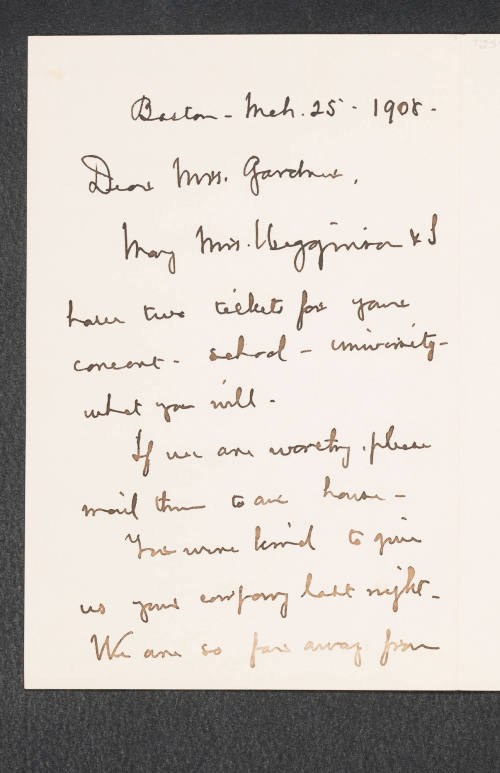 Boston - Mch. 25 - 1908 -
Dear Mrs. Gardner,
May Mrs. Higginson & I
have two tickets for your
concert - school - university -
what you will -
If we are worthy, please
mail them to our house -
You were kind to give
us your company last night -
We are so far away from